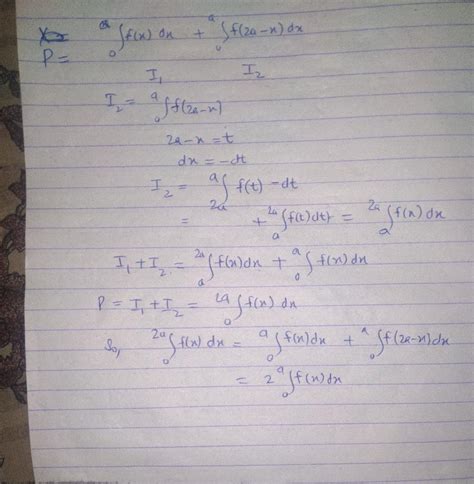 P = ₀ᵃ∫f(x) dx + ₀ᵃ∫f(2a-x) dx
I₁ I₂
I₂ = ₀ᵃ∫f(2a-x)
2a-x = t
dx = -dt
I₂ = ₂ₐᵃ∫ f(t) -dt
= + ₐ²ᵃ∫f(t)dt = ₐ²ᵃ∫f(x) dx
I₁ + I₂ = ₐ²ᵃ∫f(x)dx + ₀ᵃ∫f(x)dx
P = I₁ + I₂ = ₀²ᵃ∫f(x) dx
So, ₀²ᵃ∫f(x) dx = ₀ᵃ∫f(x)dx + ₀ᵃ∫f(2a-x)dx
= 2 ₀ᵃ∫f(x)dx